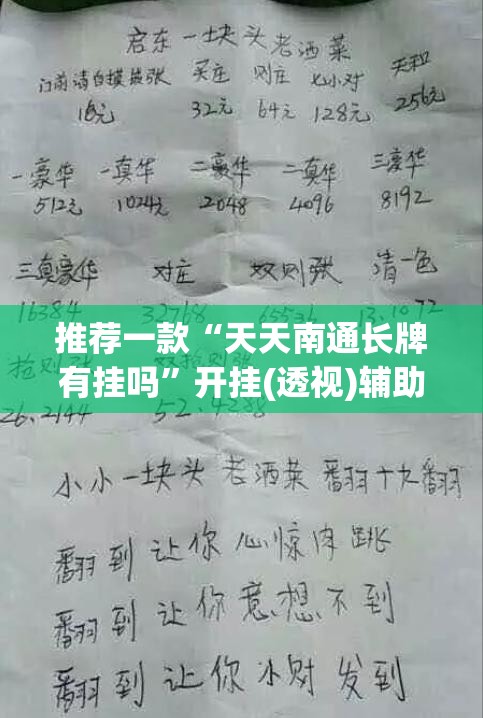 启东一块头老洒菜
门前清自摸 张 买庄 则庄 七小对 天和
16元 32元 64元 128元 256元
一豪华 一真华 二豪华 二真华 三豪华
512元 1024元 2048 4096 8192
三真豪华 对庄 双则张 清一色
16384 32768 65536 13.1072
推荐一款“天天南通长牌
有挂吗”开挂(透视)辅助
26.2144 52.4288
小小一块头 老洒菜 翻十九翻
翻到让你心惊肉跳
翻到让你意想不到
翻到让你小财发到